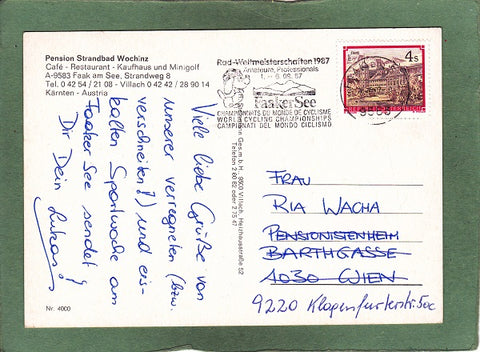 Pension Strandbad Wochinz
Café - Restaurant - Kaufhaus und Minigolf
A-9583 Faak am See, Strandweg 8
Tel. 0 42 54 / 21 08 - Villach 0 42 42 / 28 90 14
Kärnten - Austria
Rad-Weltmeisterschaften 1987
Amateure, Professionals
6.09.87
Faaker See
CHAMPIONNATS DU MONDE DE CYCLISME
WORLD CYCLING CHAMPIONSHIPS
CAMPIONATI DEL MONDO CICLISMO
4 S
Ges.m.b.H., 9500 Villach, Heizhausstraße 52
Telefon
Viele liebe Grüße von
unserer verregneten (bzw.
verschneiten!) und eis-
kalten Sportwoche am
Faaker See sendet
Dir Dein Lukas!
FRAU
RIA WACHA
PENSIONISTENHEIM
BARTHGASSE
1030 WIEN
9220 Klagenfurterstr. 50c
Nr. 4000